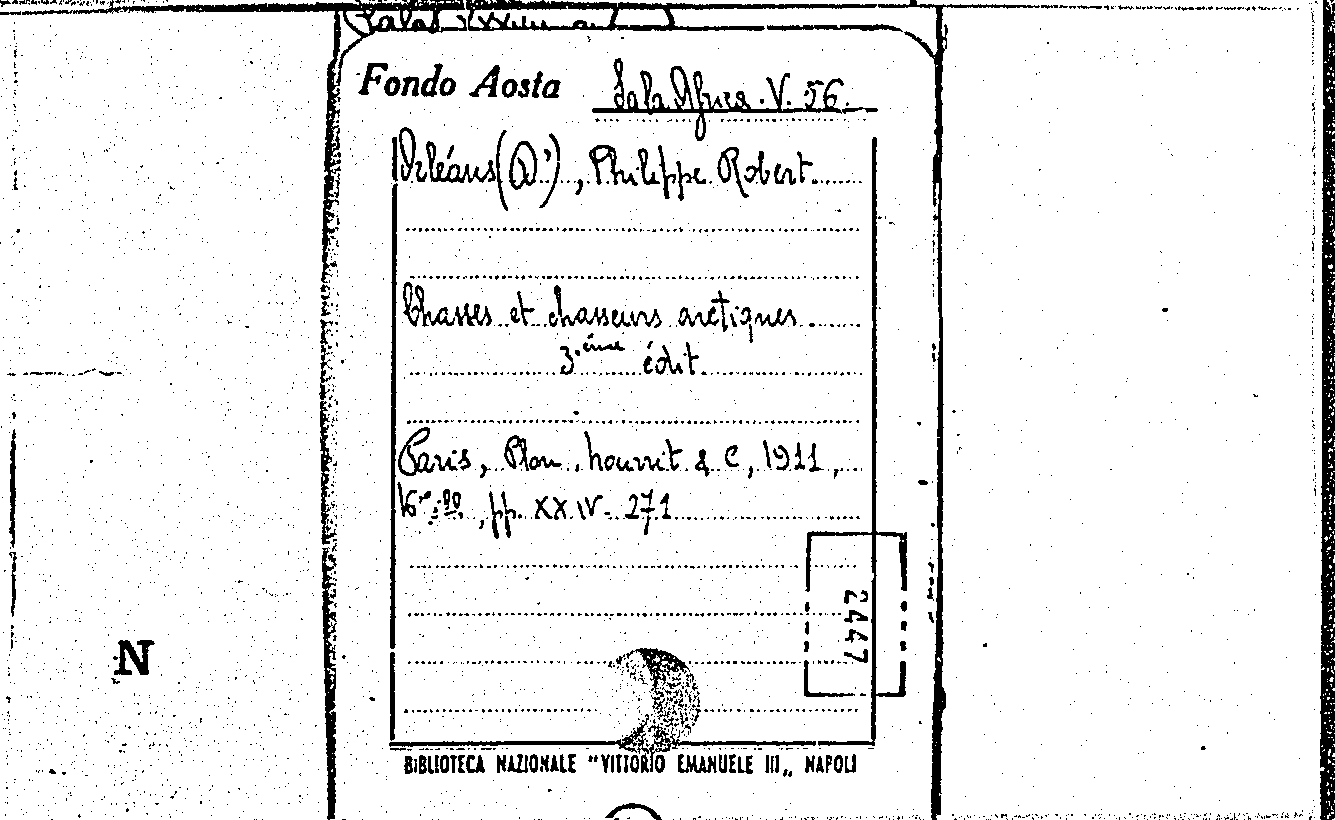 Fondo Aosta Sala Africa. V. 56.
Orléans (D'), Philippe Robert.
Chasses et chasseurs arctiques.
3.ème édit.
Paris, Plon, nourrit & C, 1911,
16°, pp. XXIV - 271
2447
N
BIBLIOTECA NAZIONALE "VITTORIO EMANUELE III„ NAPOLI